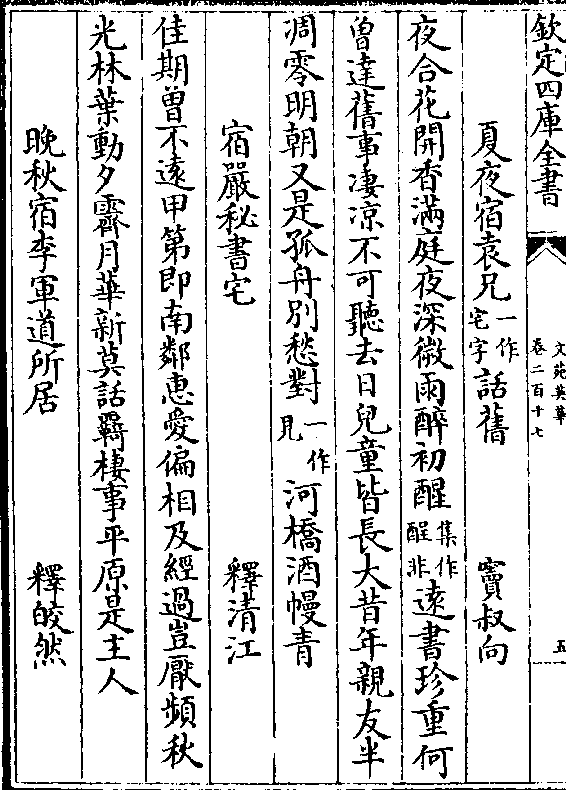 欽定四庫全書
文苑英華
卷二百十七
五
夏夜宿袁兄一作宅字話舊 竇叔向
夜合花開香滿庭夜深微雨醉初醒集作醒非逺書珍重何
曾達舊事凄涼不可聽去日兒童皆長大昔年親友半
凋零明朝又是孤舟別愁對一作見河橋酒幔青
宿嚴秘書宅 釋清江
佳期曾不逺甲第即南鄰惠愛偏相及經過豈厭頻秋
光林葉動夕霽月華新莫話羇棲事平原是主人
晚秋宿李軍道所居 釋皎然